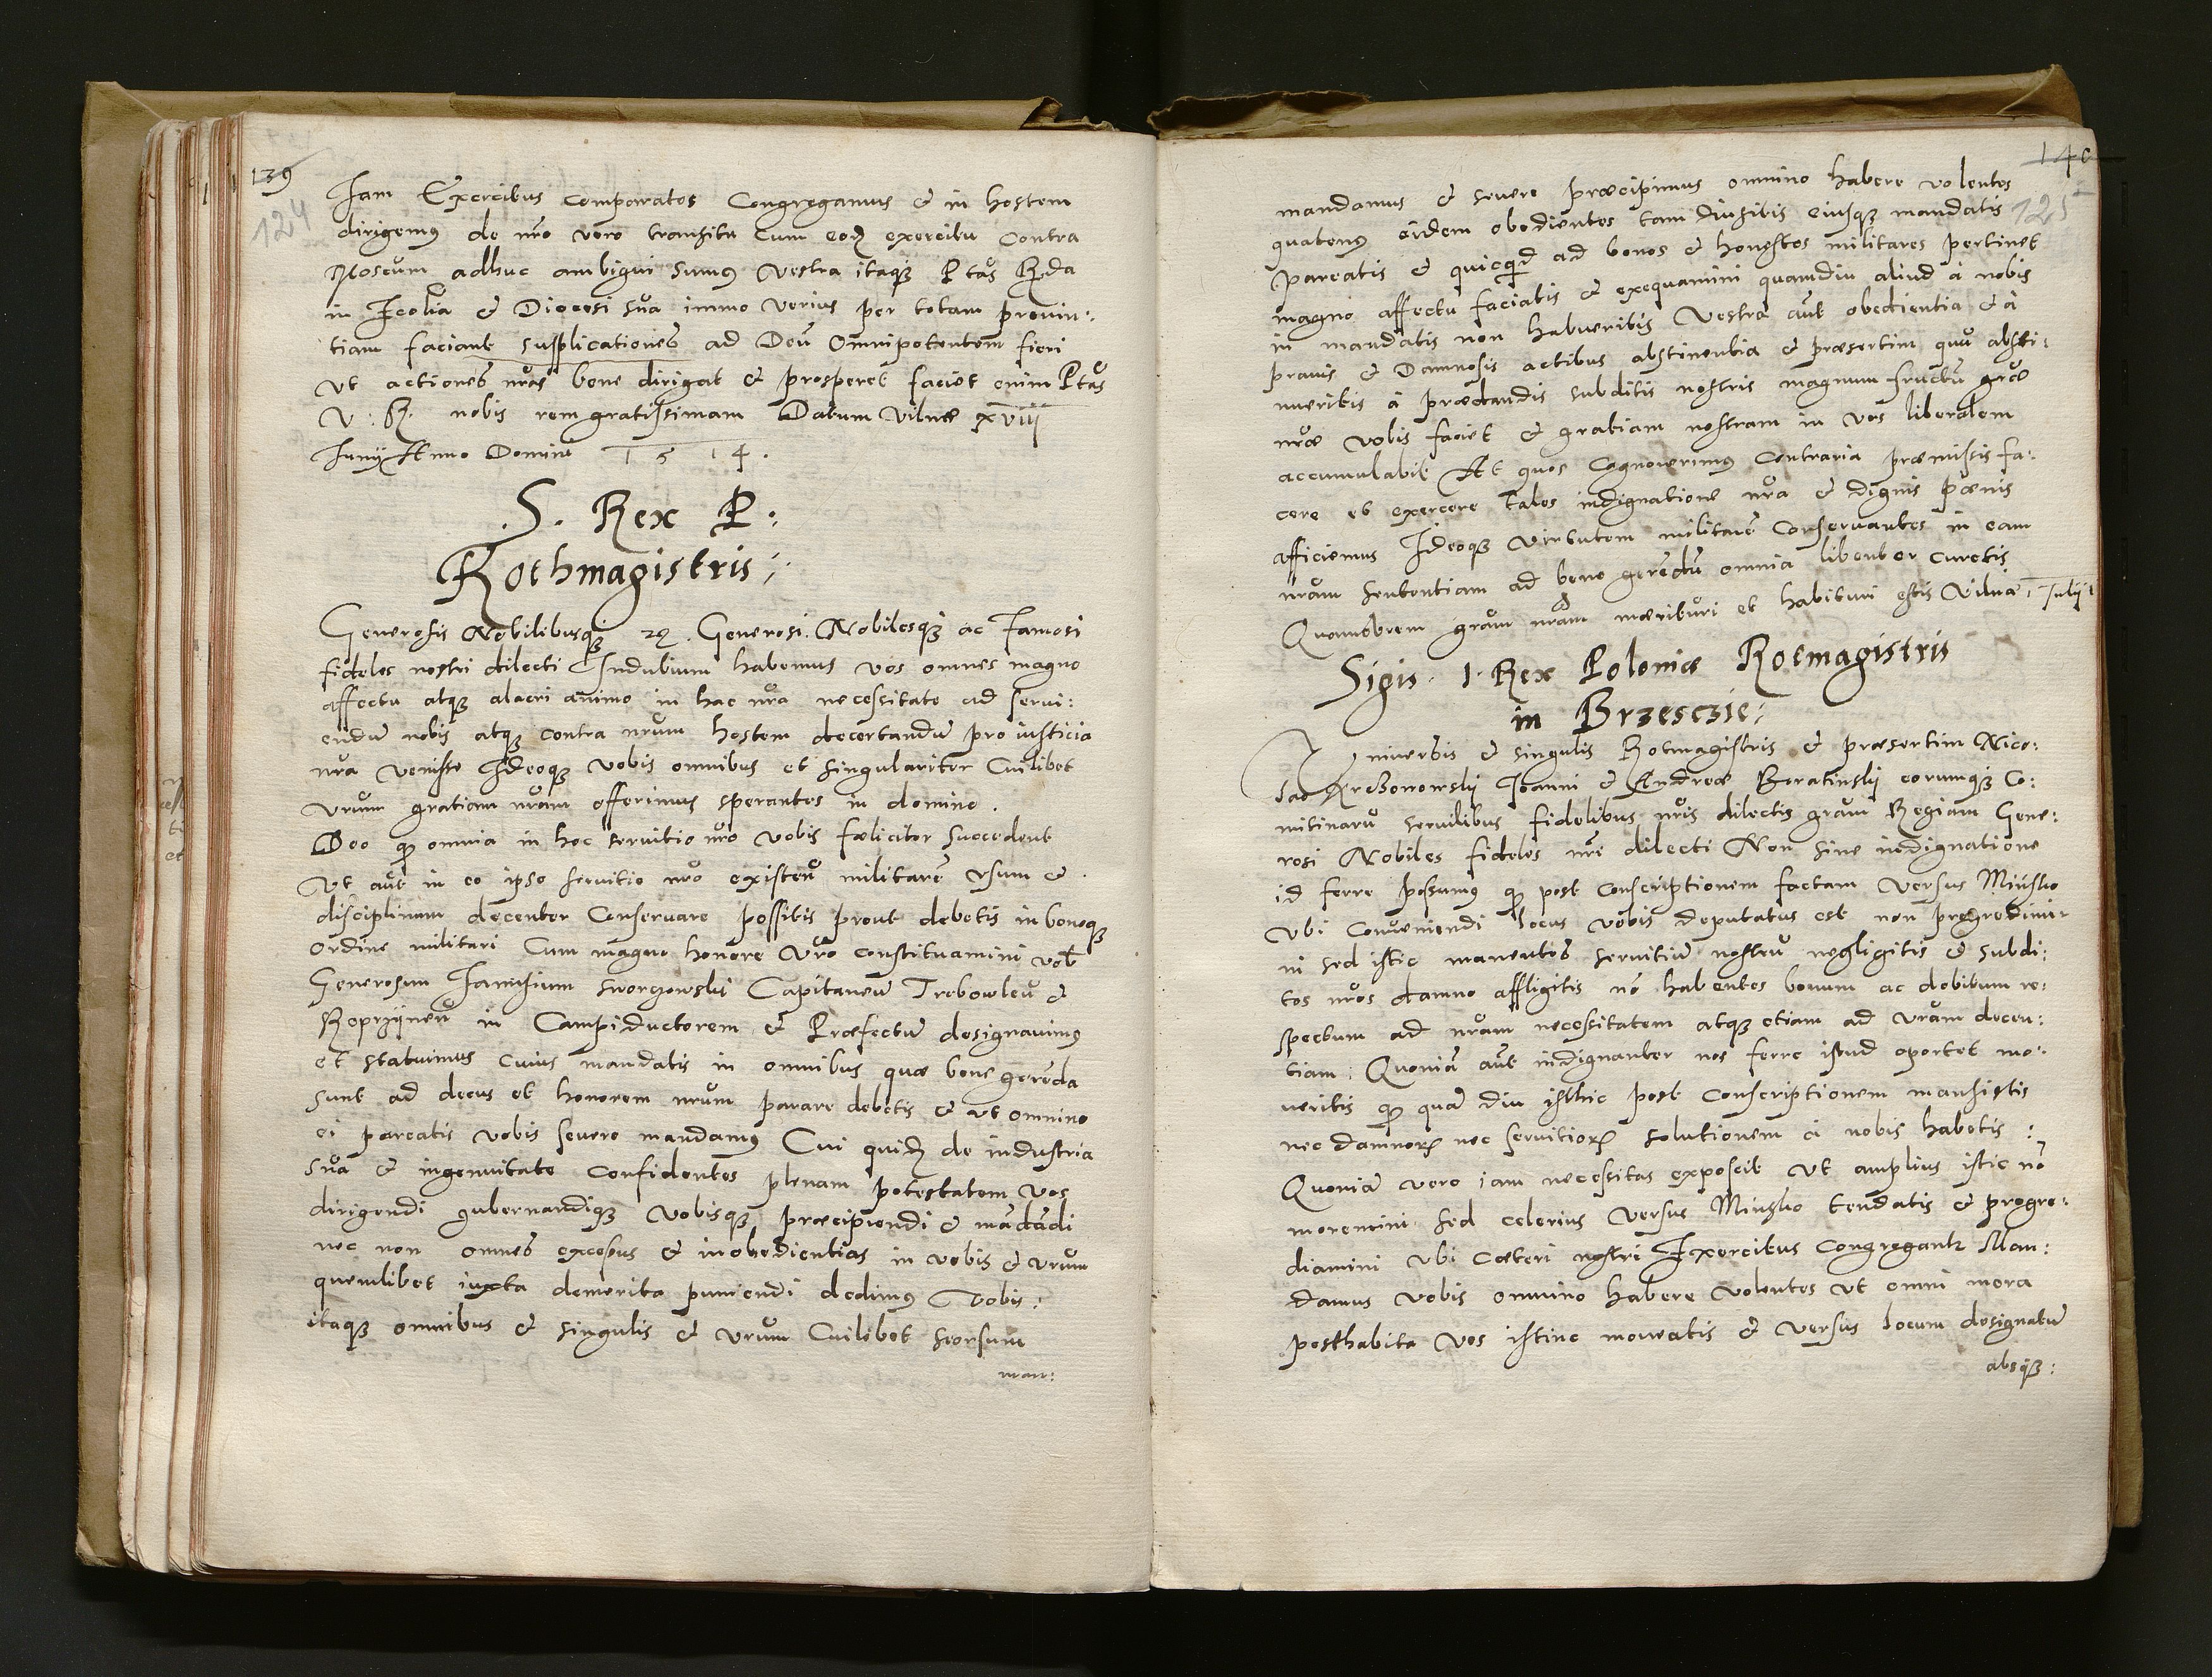 139
124
Iam Exercitus comparatos Congregamus & in hostem
dirigemus de nro vero transitu cum eodem exercitu contra
Moscum adhuc ambigui sumus Vestra itaque Ptas Rda
in Ecclia & Diocesi sua immo verius per totam provin:
tiam faciant supplicationes ad Deu Omnipotentem fieri
Vt actiones nras bene dirigat & prosperet faciet enim Ptas
V: R. nobis rem gratissimam Datum Vilnæ XViij
Junij Anno Domini 1514.
S. Rex P.
Rothmagistris;
Generosis Nobilibusque Generosi Nobilesque ac Famosi
fideles nostri dilecti Indubium habemus vos omnes magno
affectu atque alacri animo in hac nra necessitate ad servi:
endu nobis atque contra nrum hostem decertandu pro iusticia
nra venisse Ideoque vobis omnibus et singulariter Cuilibet
vrum gratiam nram offerimus sperantes in domino.
Deo qp omnia in hoc servitio nro vobis fælicitor succedent
Vt aut in eo ipso servitio nro existen militarē vsum &
disciplinam decenter Conservare possitis prout debetis in bonoque
ordine militari Cum magno honore Vro constituamini vob
Generosum Janusium Sworzowski Capitaneu Trebowleu &
Ropczijneu in Campiductorem & Præfectu designavimus
et statuimus cuius mandatis in omnibus quæ bene gerēda
sunt ad decus et honorem nrum parare debetis & vt omnino
ei pareatis vobis severe mandamus Cui quidem de industria
sua & ingenuitate confidentes plenam potestatem vos
dirigendi gubernandique vobisque præcipiendi & mādādi
nec non omnes excessus & inobedientias in vobis & vrum
quemlibet iuxta demerita puniendi dedimus Vobis:
itaque omnibus & singulis & vrum Cuilibet seorsum
man:
140
125
mandamus & severe præcipimus omnino habere volentes
quatenus eidem obedientes tam diu sitis eiusque mandatis
pareatis & quicquid ad bonos & honestos militares pertinet
magno affectu faciatis & exequamini quamdiu aliud à nobis
in mandatis non habueritis Vestra aut obedientia & à
pravis & Damnosis actibus abstinentia & præsertim quu absti:
nueritis à prædandis subditis nostris magnum fructu græ
nræ vobis faciet & gratiam nostram in vos liberalem
accumulabit At quos Cognoverimus Contraria præmissis fa:
cere et exercere tales indignatione nra & dignis pœnis
afficiemus Ideoque virtutem militare Conservantes in eam
nram sententiam ad bene gerēdu omnia libenter curetis
Quamobrem gram nram mærituri et habituri estis Vilnæ 1 Julij
Sigis. 1. Rex Poloniæ Rotmagistris
in Brzesczie;
Vniversis & singulis Rotmagistris & præsertim Nico:
lao Joanni & Andreæ Boratinskij eorumque Co:
mitinaru servilibus fidelibus nris dilectis gram Regiam Gene:
rosi Nobiles fideles nri dilecti Non sine indignatione
id ferre possumus qp post conscriptionem factam versus Minsko
Vbi Conveniendi locus vobis deputatus est non progredimi:
ni sed istic manentes servitiu nostru negligitis & subdi:
tos nros damno affligitis no habentes bonum ac debitum re:
spectum ad nram necessitatem atque etiam ad vram decen:
tiam: Quonia aut indignanter nos ferre istud oportet mo:
veritis qp qua diu isthic post conscriptionem mansistis
nec damnorum nec servitiorum solutionem a nobis habetis:
Quonia vero iam necessitas exposcit Vt amplius istic no
moremini sed celerius versus Minsko tendatis & progre:
diamini vbi cæteri nostri Exercitus congregantr Man:
damus vobis omnino habere volentes vt omni mora
posthabita vos istinc moveatis & versus locum designatu
absque: